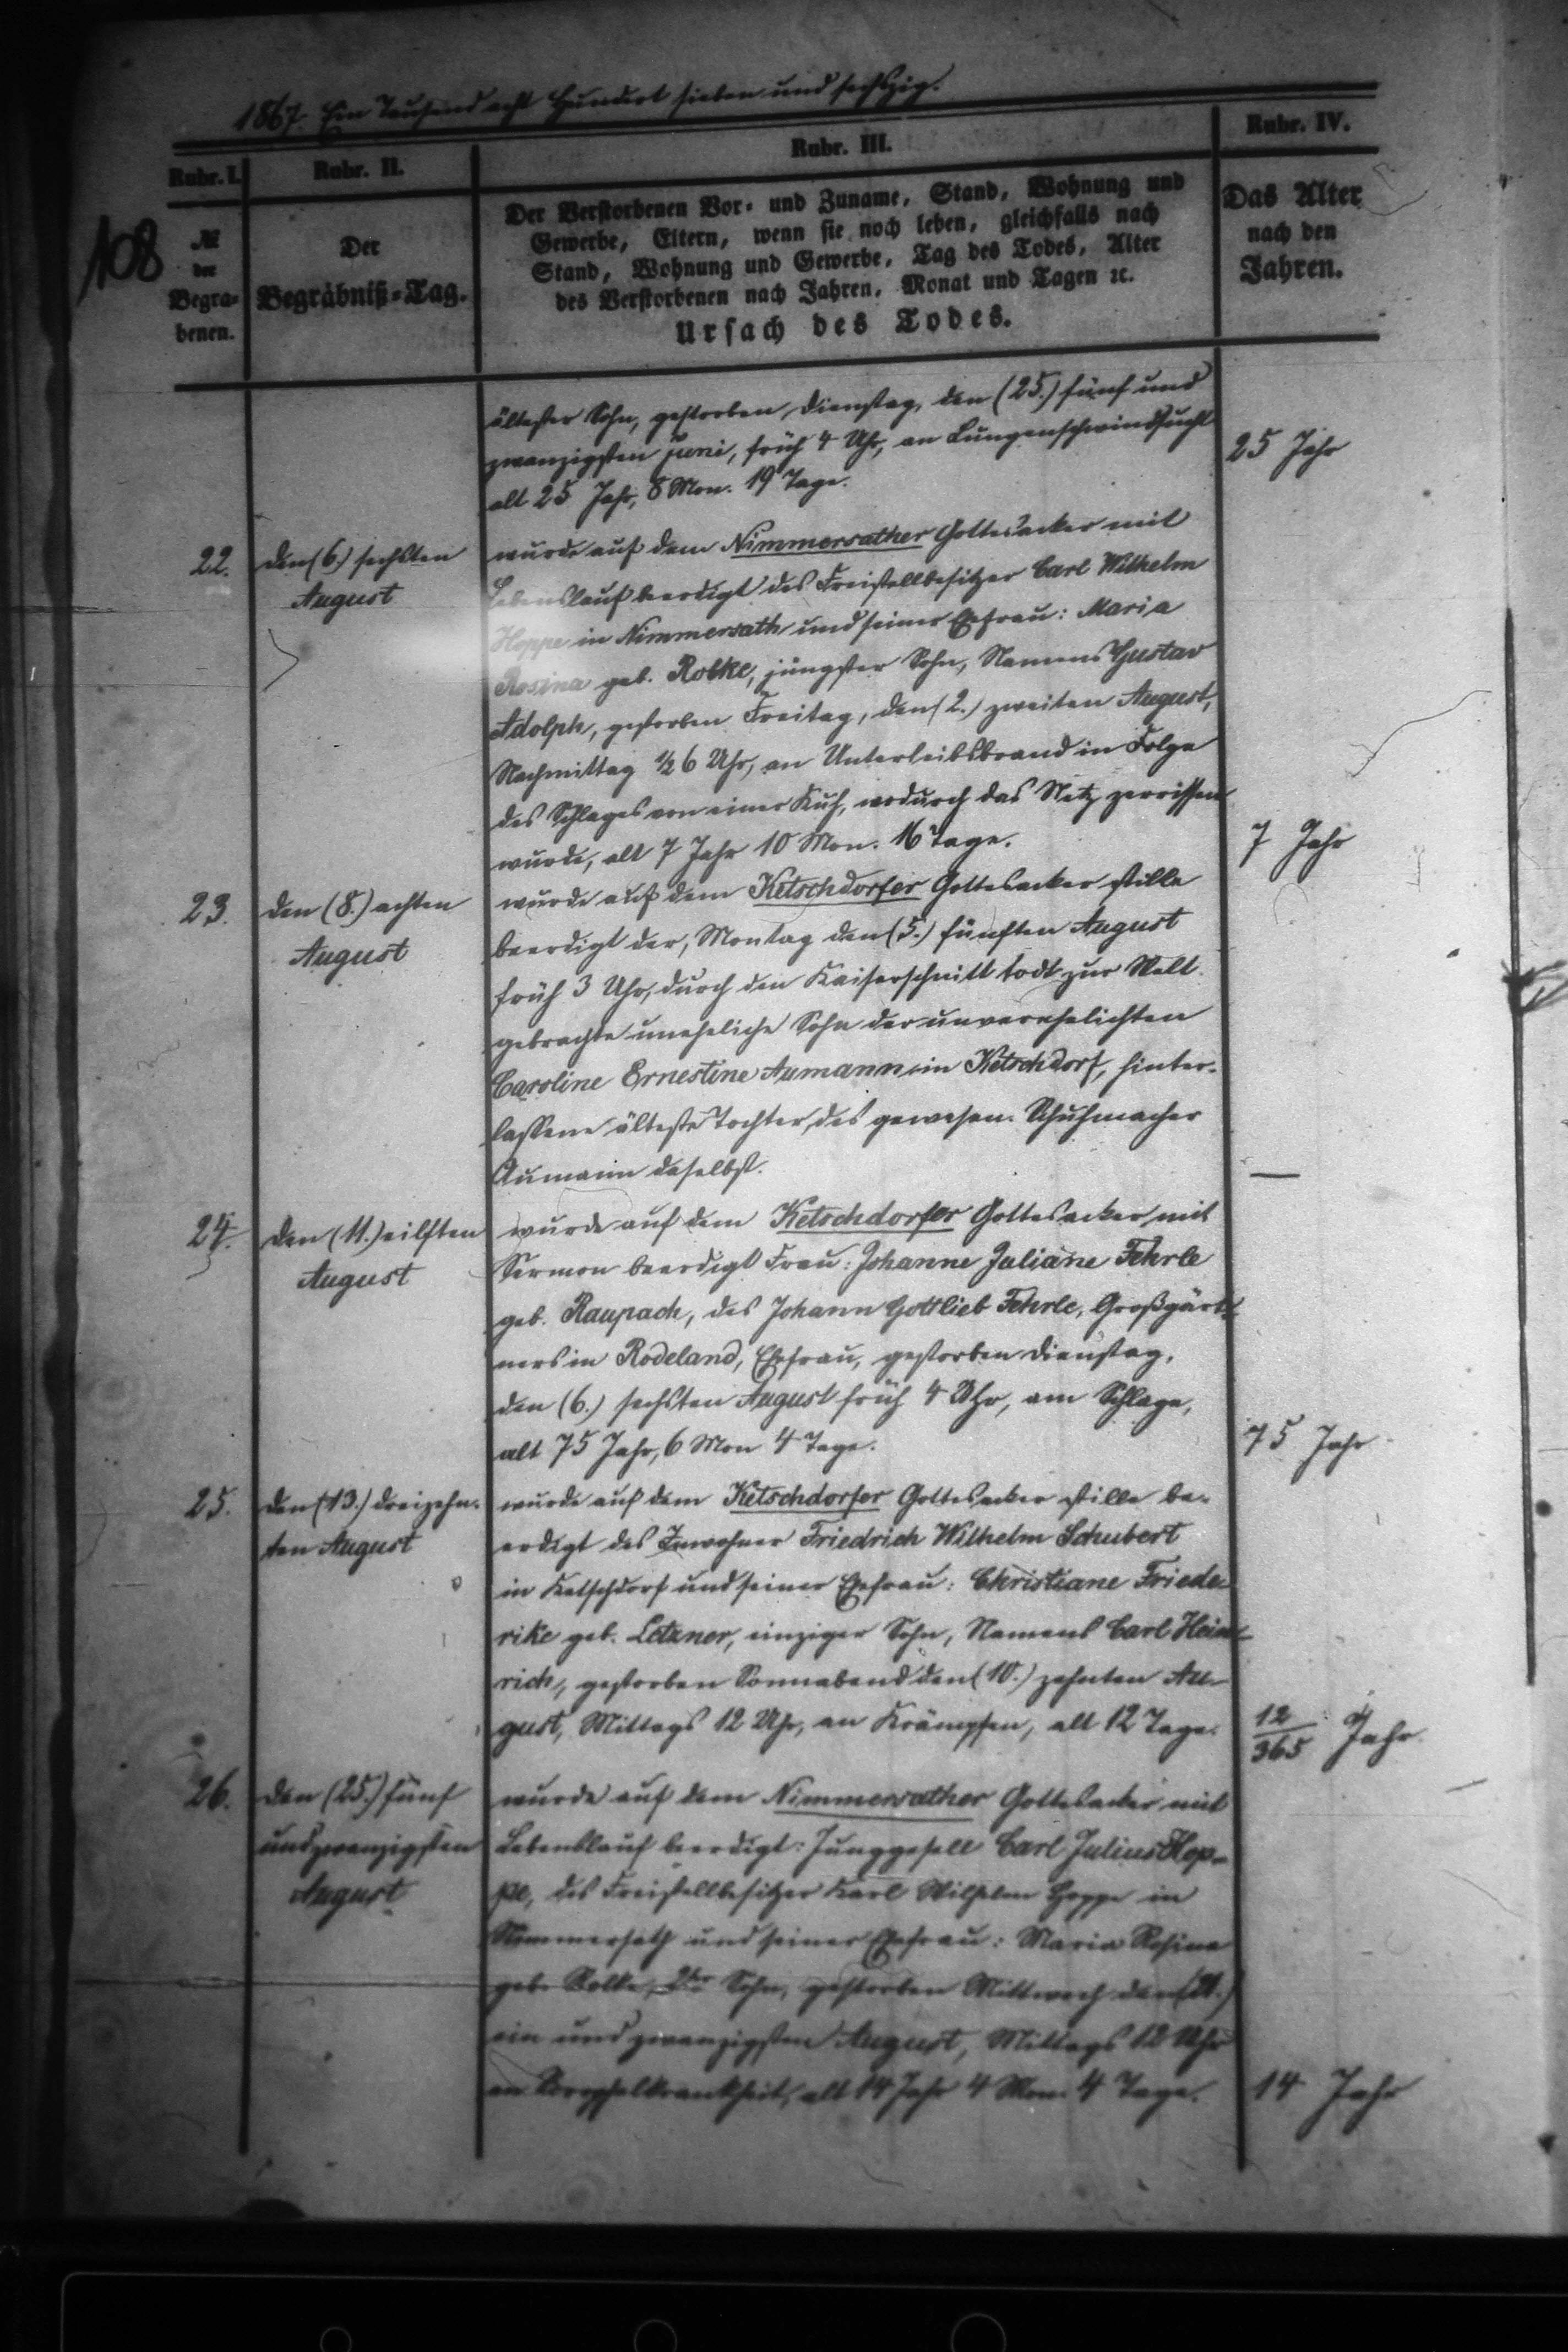 1867. Ein Tausend acht Hundert sieben und sechszig.
Rubr. I. Rubr. II. Rubr. III. Rubr. IV.
108
№ der Begra-benen.
Der Begräbniß-Tag.
Der Verstorbenen Vor- und Zuname, Stand, Wohnung und
Gewerbe, Eltern, wenn sie noch leben, gleichfalls nach
Stand, Wohnung und Gewerbe, Tag des Todes, Alter
des Verstorbenen nach Jahren, Monat und Tagen ꝛc.
Ursach des Todes.
Das Alter
nach den
Jahren.
ältester Sohn, gestorben Dienstag, den (25.) fünf und
zwanzigsten Juni, früh 4 Uhr, an Lungenschwindsucht
alt 25 Jahr, 8 Mon. 19 Tage. 25 Jahr
22. den (6.) sechsten
August
wurde auf dem Nimmersather Gottesacker mit
Lebenslauf beerdigt des Freistellbesitzer Carl Wilhelm
Hoppe in Nimmersath und seiner Ehefrau: Maria
Rosina geb. Rolke, jüngster Sohn, Namens Gustav
Adolph, gestorben Freitag, den (2.) zweiten August,
Nachmittag ½ 6 Uhr, an Unterleibsbrand in Folge
des Schlages von einer Kuh, wodurch das Netz zerrissen
wurde, alt 7 Jahr 10 Mon. 16 Tage. 7 Jahr
23. den (8.) achten
August
wurde auf dem Ketschdorfer Gottesacker stille
beerdigt der, Montag den (5.) fünften August
früh 3 Uhr, durch den Kaiserschnitt todt zur Welt
gebrachte uneheliche Sohn der unverehelichten
Caroline Ernestine Aumann in Ketschdorf, hinter-
lassene älteste Tochter des gewesen. Schuhmacher
Aumann daselbst. —
24. den (11.) eilften
August
wurde auf dem Ketschdorfer Gottesacker mit
Sermon beerdigt Frau: Johanne Juliane Fehrle
geb. Raupach, des Johann Gottlieb Fehrle, Großgärt-
ners in Rodeland, Ehefrau, gestorben Dienstag,
den (6.) sechsten August früh 4 Uhr, am Schlage,
alt 75 Jahr, 6 Mon 4 Tage. 75 Jahr
25. den (13.) dreizehn-
ten August
wurde auf dem Ketschdorfer Gottesacker stille be-
erdigt des Inwohner Friedrich Wilhelm Schubert
in Ketschdorf und seiner Ehefrau: Christiane Friede-
rike geb. Letzner, einziger Sohn, Namens Carl Hein-
rich, gestorben Sonnabend den (10.) zehnten Au-
gust, Mittags 12 Uhr, an Krämpfen, alt 12 Tage. 12/365 Jahr.
26. den (25.) fünf
und zwanzigsten
August
wurde auf dem Nimmersather Gottesacker mit
Lebenslauf beerdigt: Junggesell Carl Julius Hop-
pe, des Freistellbesitzer Karl Wilhelm Hoppe in
Nimmersath und seiner Ehefrau: Maria Rosina
geb. Rolke, 2ter Sohn, gestorben Mittwoch den (21.)
ein und zwanzigsten August, Mittags 12 Uhr
an alt 14 Jahr 4 Mon. 4 Tage. 14 Jahr